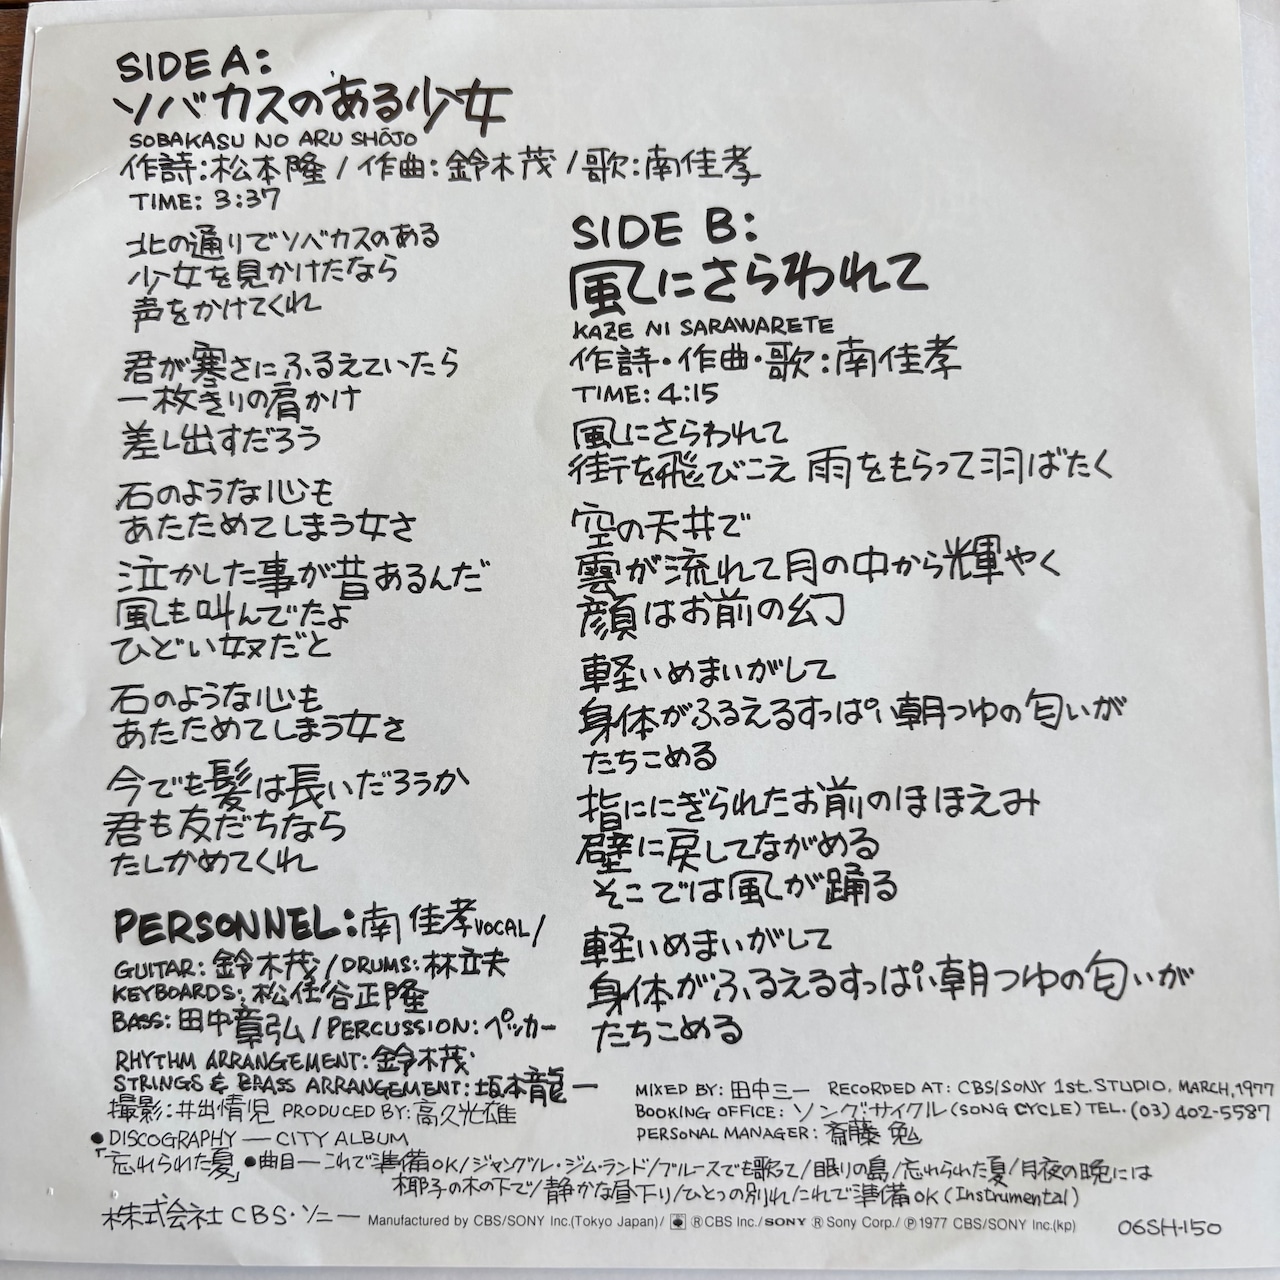 SIDE A:
ソバカスのある少女
SOBAKASU NO ARU SHŌJO
作詩:松本隆/作曲:鈴木茂/歌:南佳孝
TIME: 3:37
北の通りでソバカスのある
少女を見かけたなら
声をかけてくれ
君が寒さにふるえていたら
一枚きりの肩かけ
差し出すだろう
石のような心も
あたためてしまう女さ
泣かした事が昔あるんだ
風も叫んでたよ
ひどい奴だと
石のような心も
あたためてしまう女さ
今でも髪は長いだろうか
君も友だちなら
たしかめてくれ
PERSONNEL:南佳孝VOCAL/
GUITAR:鈴木茂/DRUMS:林立夫
KEYBOARDS:松任谷正隆
BASS:田中章弘/PERCUSSION:ペッカー
RHYTHM ARRANGEMENT:鈴木茂
STRINGS & BRASS ARRANGEMENT:坂本龍一
撮影:井出情児 PRODUCED BY:高久光雄
SIDE B:
風にさらわれて
KAZE NI SARAWARETE
作詩・作曲・歌:南佳孝
TIME: 4:15
風にさらわれて
街を飛びこえ 雨をもらって羽ばたく
空の天井で
雲が流れて月の中から輝やく
顔はお前の幻
軽いめまいがして
身体がふるえるすっぱい朝つゆの匂いが
たちこめる
指ににぎられたお前のほほえみ
壁に戻してながめる
そこでは風が踊る
軽いめまいがして
身体がふるえるすっぱい朝つゆの匂いが
たちこめる
MIXED BY:田中三一 RECORDED AT: CBS/SONY 1st. STUDIO. MARCH,1977
BOOKING OFFICE: ソングサイクル(SONG CYCLE) TEL.(03)402-5587
PERSONAL MANAGER:斎藤 勉
●DISCOGRAPHY — CITY ALBUM
「忘れられた夏」●曲目—これで準備OK/ジャングル・ジム・ランド/ブルースでも歌って/眠りの島/忘れられた夏/月夜の晩には
椰子の木の下で/静かな昼下り/ひとつの別れ/これで準備OK(Instrumental)
株式会社 CBS・ソニー Manufactured by CBS/SONY Inc.(Tokyo Japan)/ ®CBS Inc./SONY ®Sony Corp./℗1977 CBS/SONY Inc.(kp) 06SH-150